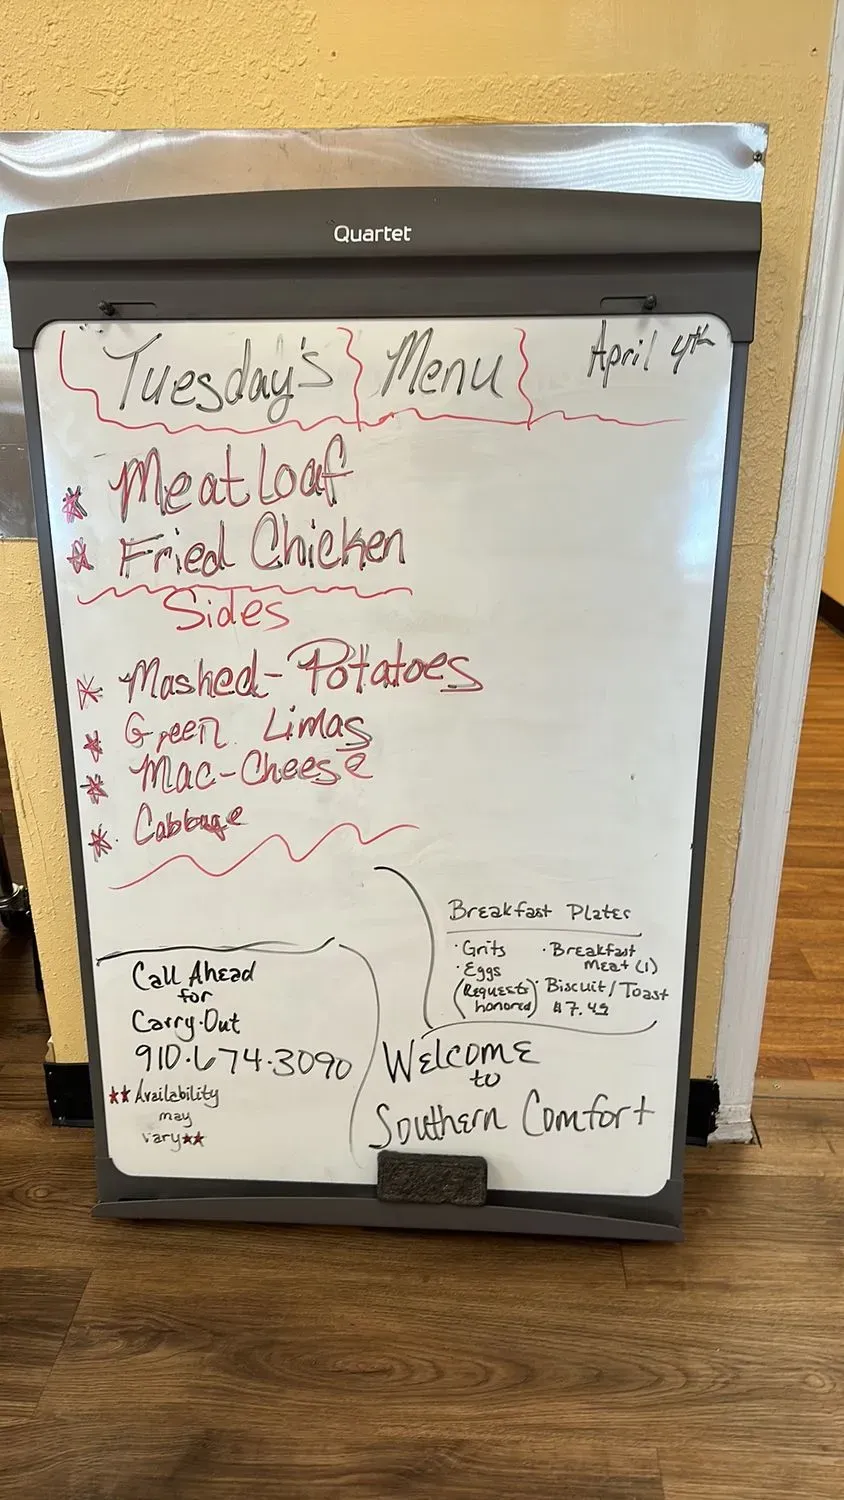 Quartet
Tuesday's Menu April 4th
Meatloaf
Fried Chicken
Sides
Mashed-Potatoes
Green Limas
Mac-Cheese
Cabbage
Breakfast Plates
· Grits
· Eggs
(Requests
honored)
· Breakfast
Meat (1)
· Biscuit/Toast
$7.49
Call Ahead
for
Carry-Out
910-674-3090
**Availability
may
vary**
Welcome
to
Southern Comfort